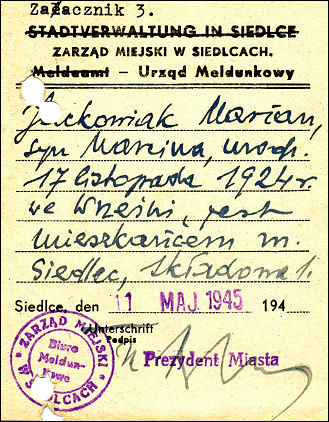 Załacznik 3.
STADTVERWALTUNG IN SIEDLCE
ZARZĄD MIEJSKI W SIEDLCACH.
Meldeamt – Urząd Meldunkowy
Jackowiak Marian,
syn Marcina, urodz.
17 listopada 1924 r.
we Wrześni, jest
mieszkańcem m.
Siedlec, Składowa 1.
Siedlce, den 11 MAJ. 1945 194
Unterschrift
Podpis
Prezydent Miasta
ZARZĄD MIEJSKI
W SIEDLCACH
Biuro
Meldun-
kowe